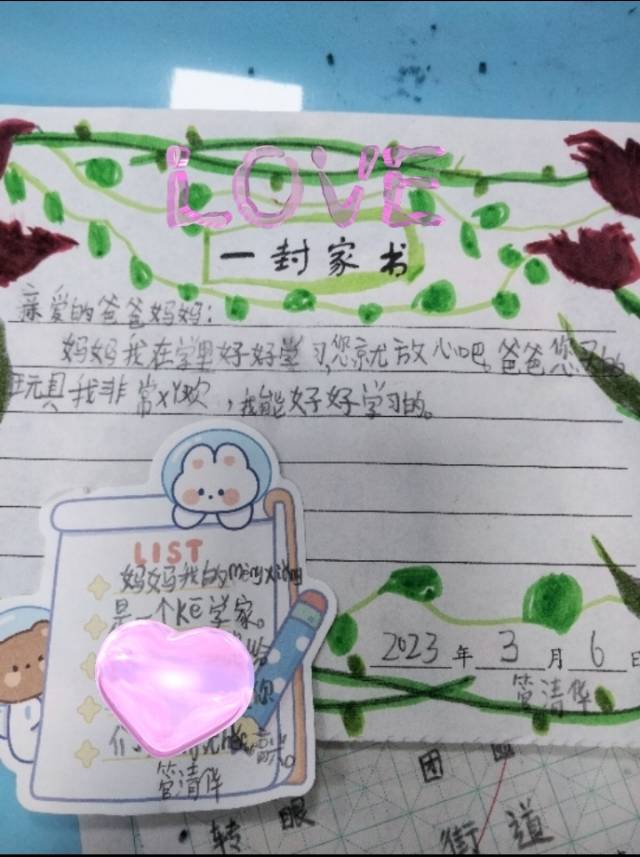 LOVE
一封家书
亲爱的爸爸妈妈：
妈妈我在学里好好学习,您就放心吧。爸爸您买的
玩具我非常xi欢，我能好好学习的。
LIST
妈妈我的mèng xiǎng
是一个Kē学家。
给
你
们
管清华
2023年3月6日
管清华
团圆
转眼
街道